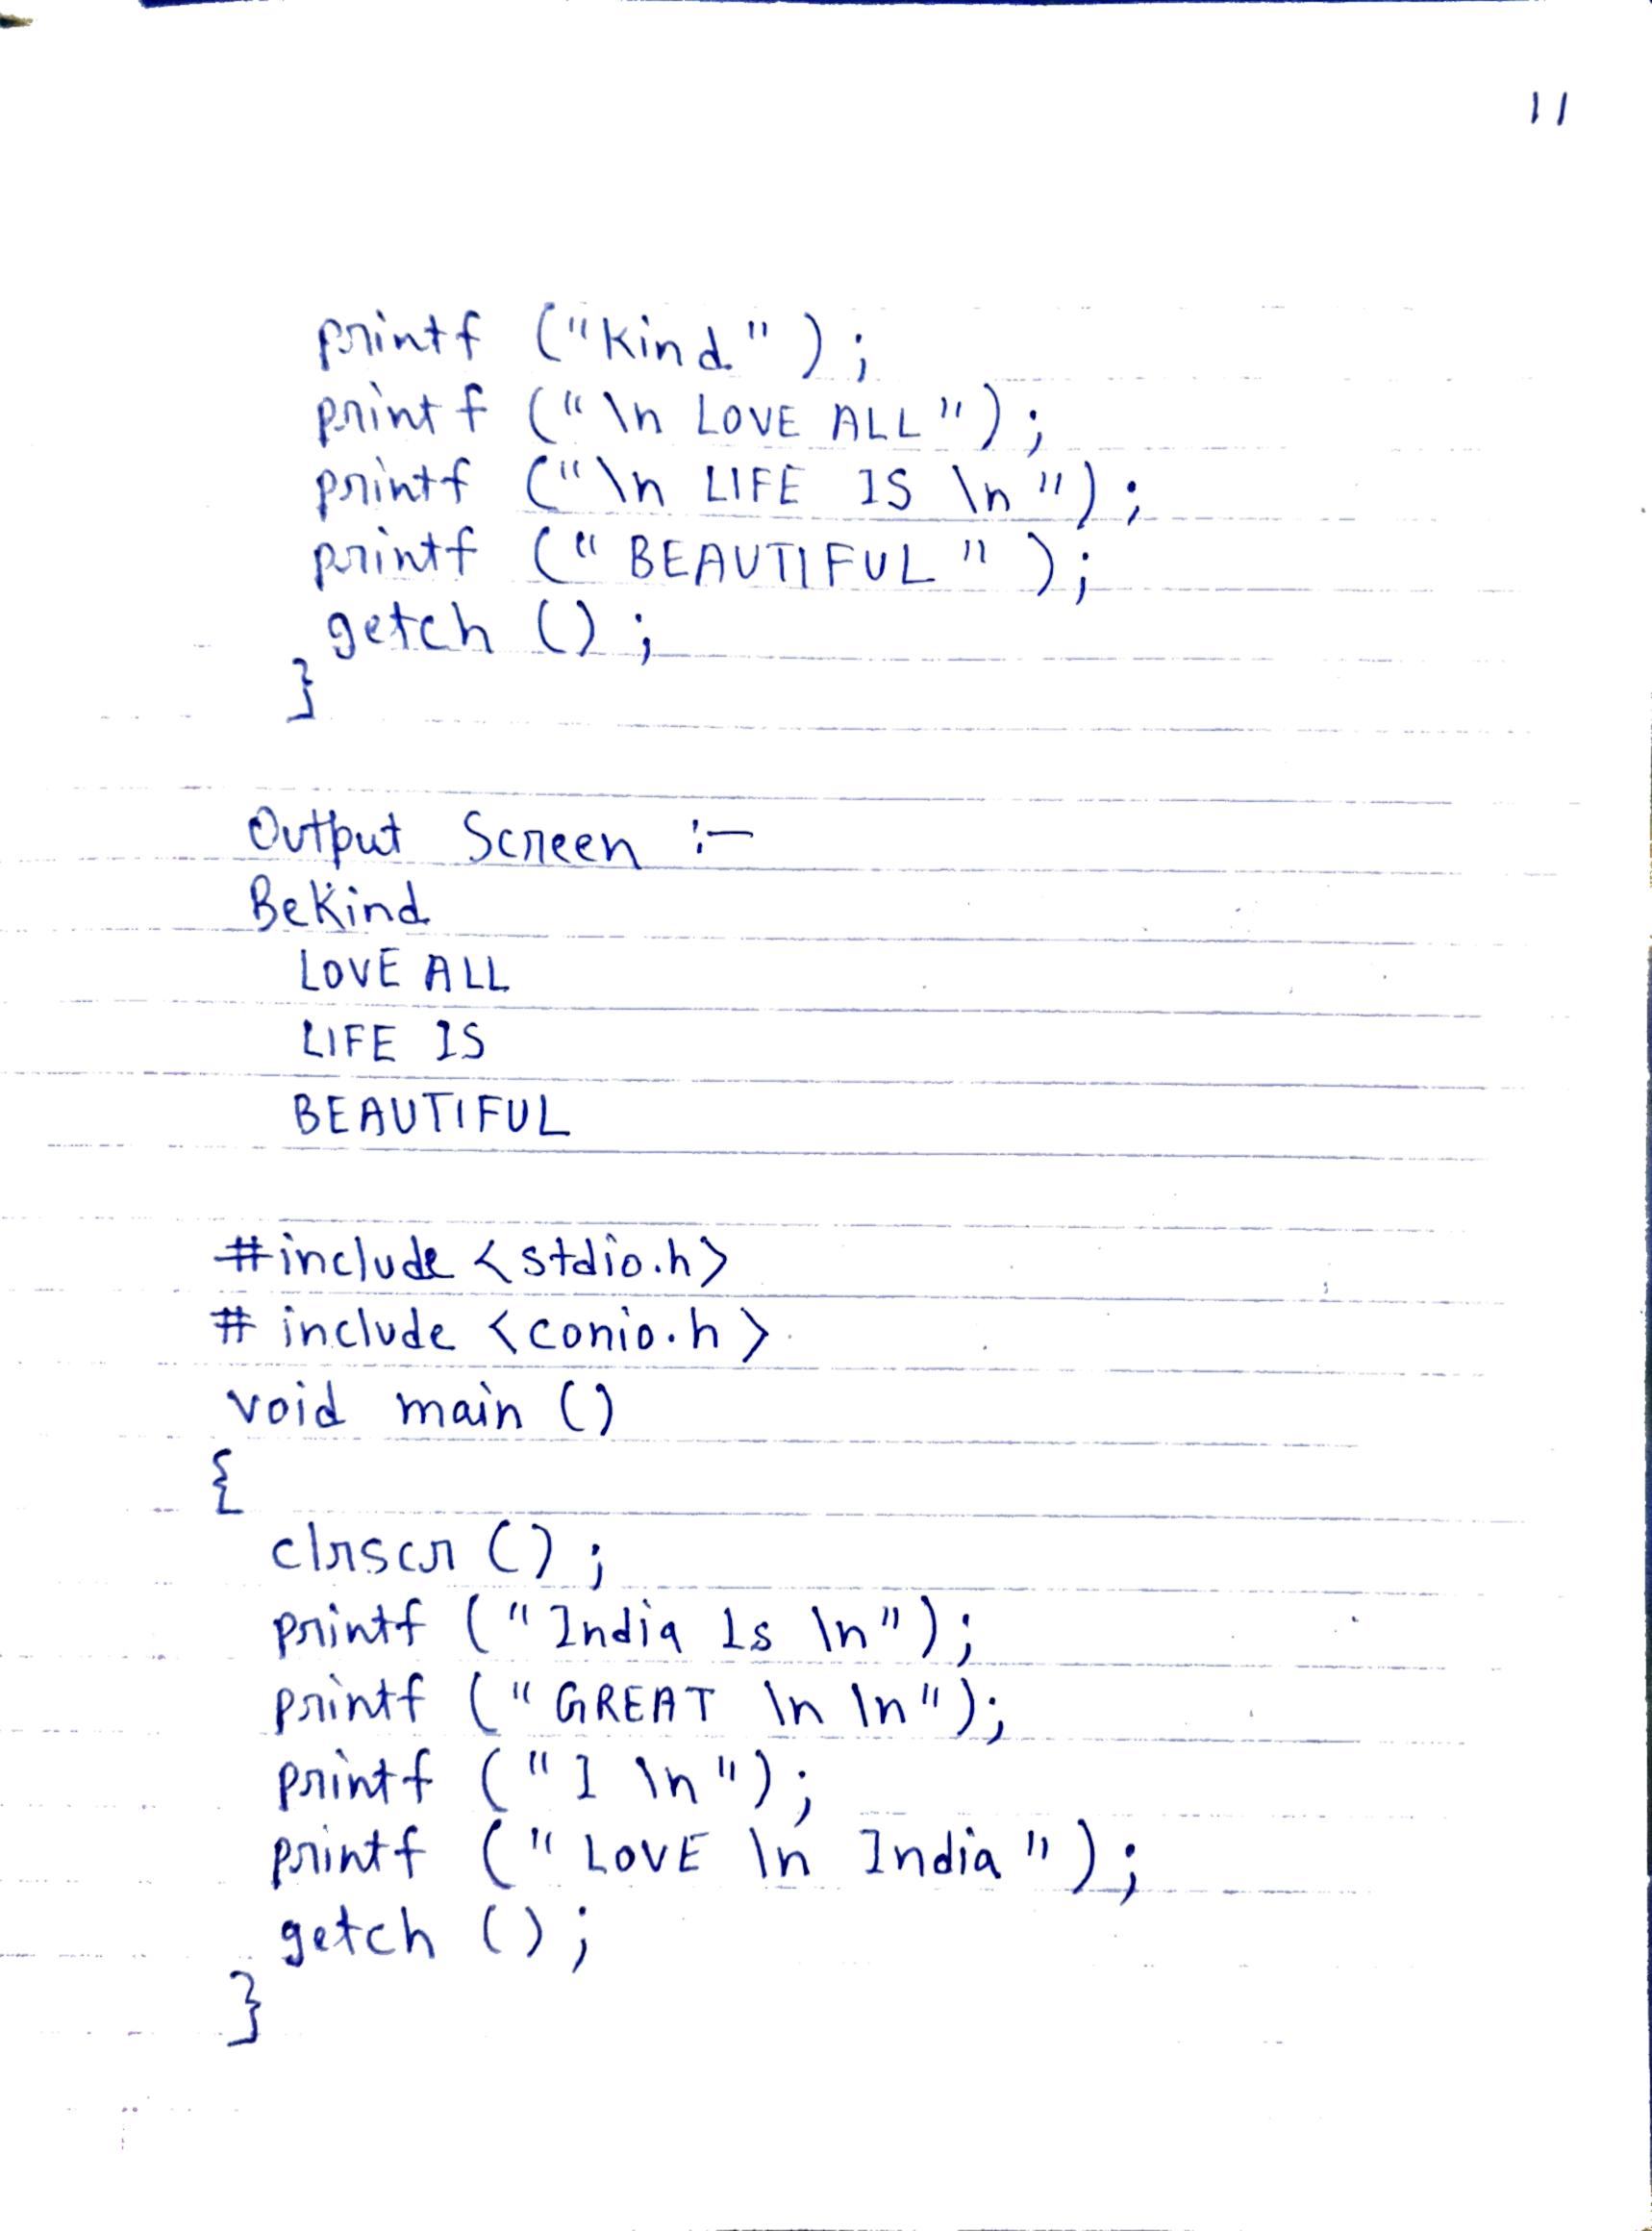 11
printf ("Kind");
printf ("\n LOVE ALL");
printf ("\n LIFE IS \n");
printf (" BEAUTIFUL ");
getch ();
}
Output Screen :-
BeKind
LOVE ALL
LIFE IS
BEAUTIFUL
#include <stdio.h>
# include <conio.h>
void main ()
{
clrscr ();
printf ("India Is \n");
printf ("GREAT \n \n");
printf ("I \n");
printf ("LOVE \n India");
getch ();
}